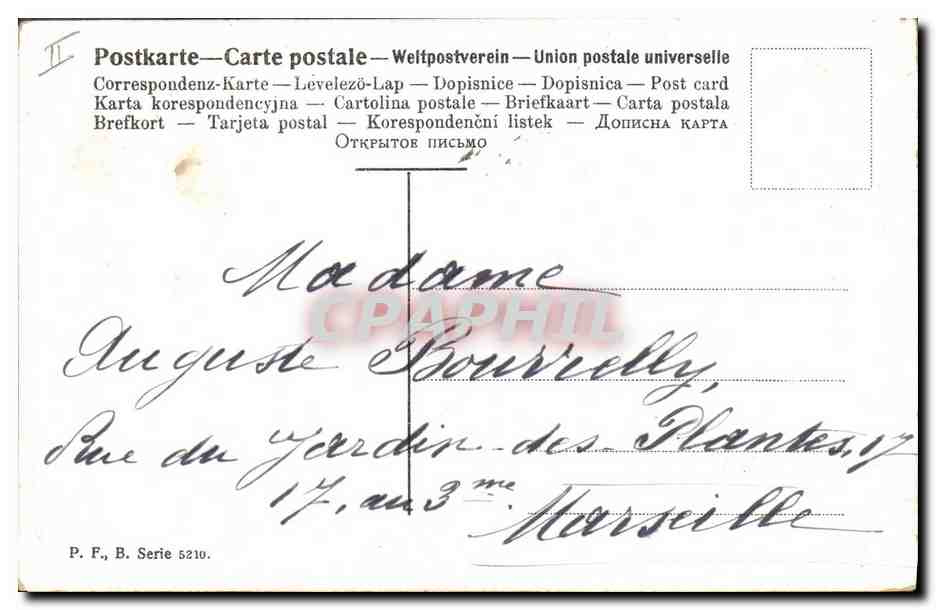 II
Postkarte—Carte postale—Weltpostverein—Union postale universelle
Correspondenz-Karte—Levelezö-Lap—Dopisnice—Dopisnica—Post card
Karta korespondencyjna — Cartolina postale — Briefkaart — Carta postala
Brefkort — Tarjeta postal — Korespondenční listek — Дописна карта
Открытое письмо
Madame
CPAPHIL
Auguste Bourrelly,
Rue du Jardin-des-Plantes, 17
17, au 3me
Marseille
P. F., B. Serie 5210.